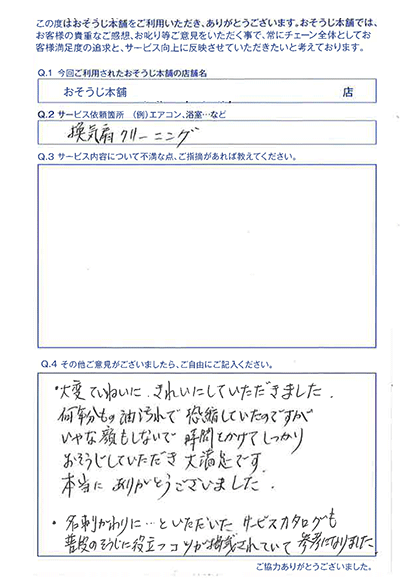 この度はおそうじ本舗をご利用いただき、ありがとうございます。おそうじ本舗では、
お客様の貴重なご感想、お叱り等ご意見をいただく事で、常にチェーン全体としてお
客様満足度の追求と、サービス向上に反映させていただきたいと考えております。
Q.1 今回ご利用されたおそうじ本舗の店舗名
おそうじ本舗 店
Q.2 サービス依頼箇所 (例)エアコン、浴室…など
換気扇クリーニング
Q.3 サービス内容について不満な点、ご指摘があれば教えてください。
Q.4 その他ご意見がございましたら、ご自由にご記入ください。
・大変ていねいに、きれいにしていただきました。
何年分もの油汚れで恐縮していたのですが
いやな顔もしないで時間をかけてしっかり
おそうじしていただき大満足です。
本当にありがとうございました。
・名刺がわりに…といただいたサービスカタログも
普段のそうじに役立つコツが掲載されていて参考になりました
ご協力ありがとうございました。